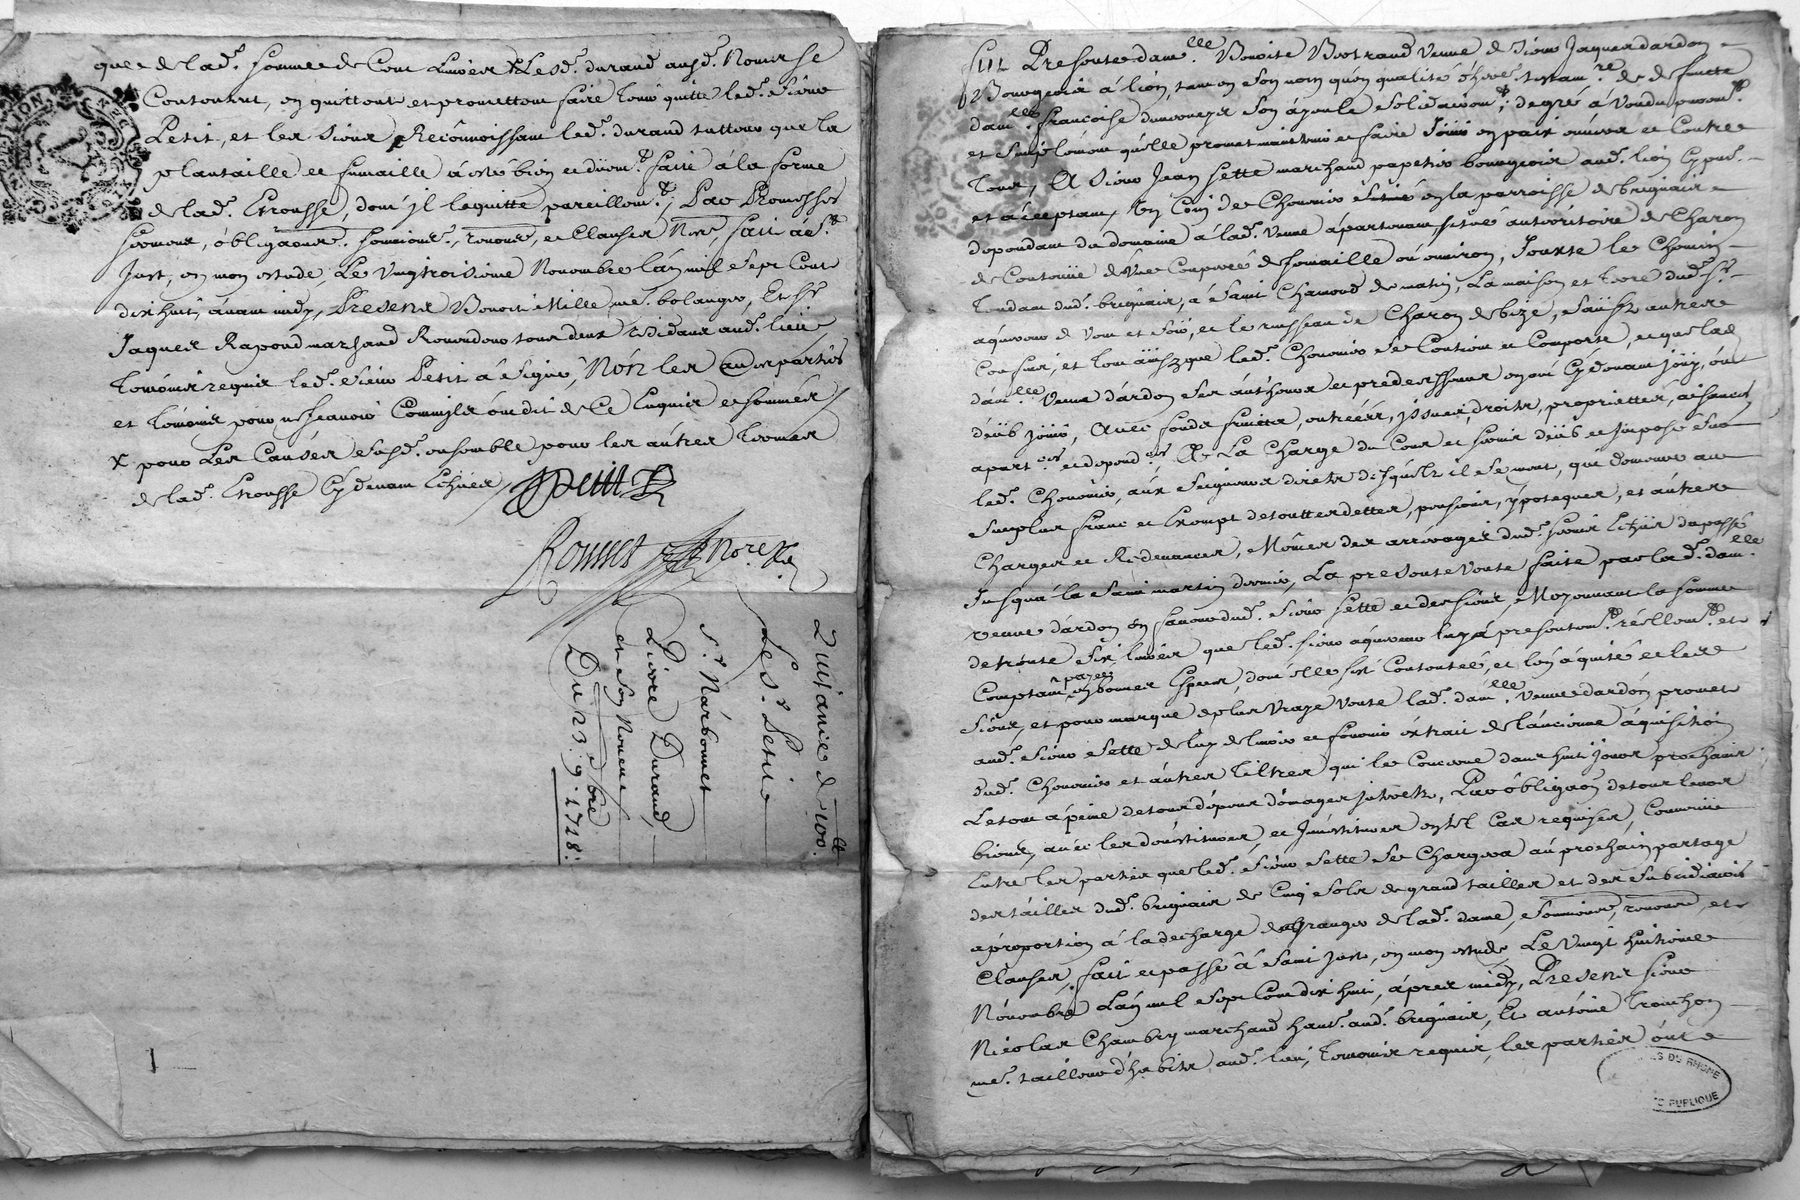 que de lad. somme de Cent Livres Led. durand aud. nom se
Contentent, en quittent et promettent faire tenir quitte led. sieur
Petit, et les sieur Reconnoissant led. durand tutteur que la
plantaille et fumaille a esté bien et duement faite à la forme
de lad. Grousse, dont jl le quitte pareillemt, Par Promesses
serment, obligations. soumions., renons, et Clauses Nres, fait a St
Just, en mon estude, Le vingtroisieme Novembre lan mil Sept Cent
dix huit, avant midy, Presens Benoit Mille me. bolanger, Et Sr
Jaques Rapoud marchand Revendeur tous deux residant aud. lieu
temoins requis led. sieur Petit a signé, Non les autres parties
et temoins pour ne scavoir Comm'ils ont dit de Ce Enquis et sommés
X pour Les Causes susd. ensemble pour les autres Termes
de lad. Grousse Cy devant Echües, J Petit
Lyon
Quitance de 100 ll.
Le Sr. Petit
Sr. Narbonnet
Pierre Durand,
et son Neveu
Du 23: 9bre 1718:
fut Presente damlle. Benoite Bertrand veuve de sieur Jaques dardon
Bourgeois à lion, tant en son nom qu'en qualité d'here. testamre. de deffuntte
damlle. francoise son ayeule solidairemt, de gré à Vendu puremt
et simplement qu'elle promet maintenir et faire Jouir en paix envers et Contre
Tous, A sieur Jean sette marchand papetier bourgeois aud. lion Cy pnt.
et acceptant, Un Coin de Chenevier situé en la parroisse de brignais
dependant du domaine à lad. veuve apartenant situé au territoire de Charon
de Contenue d'Une Couppée de semaille ou environ, Jouxte le Chemin
Tendant dud. brignais, à Saint Chamond de matin, La maison et Terre dud. Sr.
aquereur de vent et soir, et le ruisseau de Charon de bize, sauf autres
Confins, et tout ainsy que led. Chenevier se Contient et Comporte, et que lad.
damlle. veuve dardon ses autheurs et predecesseurs en ont Cy devant jouy, ou
deub jouir, Avec fonds fruits, entrées, issues, droits, proprietter, aisances
apartces et dependces, A La Charge du Cens et servis deub et imposé sur
led. Chenevier, aux seigneurs directs desquels il se meut, que demeure au
surplus franc et Exempt de touttes dettes, pensions, ypoteques, et autres
Charges et Redevances, Mêmes des arrerages dud. servis Echus du passé
Jusqu'à la saint martin dernier, La presente vente faite par lad. damlle
veuve dardon en faveur dud. sieur sette et des siens, Moyennant la somme
de trente six livres que led. sieur aquereur luy a presentemt. reellemt. et
Comptant payée en bonnes Especes, dont elle s'est Contentée, et l'en a quitté et les
siens, et pour marque de plus vraye vente lad. damlle. veuve dardon promet
aud. sieur sette de luy delivrer et fournir extrait de l'ancienne aquisition
dud. Chenevier et autres Tiltres qui le Concerne dans huit jours prochains
Le tout a peine de tous depens domages interests, Par obligaon de tous leurs
biens, avec les devestitures, et Jnvestitures en tel Cas requises, Convenu
Entre les parties que led. sieur sette se Chargera au prochain partage
des tailles dud. brignais de Cinq sols de grand tailles et des subsidiaires
a proportion à la decharge du Granger de lad. dame, soumions, renons, et
Clauses, fait et passé à Saint Just, en mon estude Le Vingt huitieme
Novembre Lan mil Sept Cent dix huit, apres midy, Presens sieur
Nicolas Chambry marchand hant. aud. brignais, Et antoine Tronchon
me. tailleur d'habits aud. lieu, temoins requis, les parties ont
ES DU RHONE
PUBLIQUE